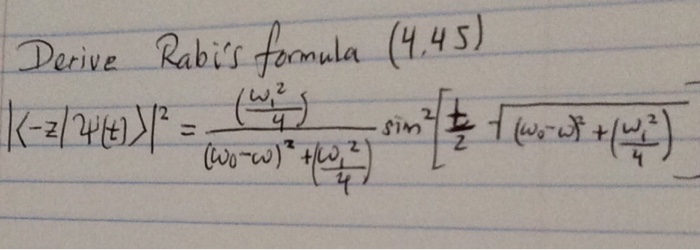 Derive Rabi's formula (4.45)
|<-z|Ψ(t)>|² = (ω₁²/4) / ((ω₀-ω)² + (ω₁²/4)) sin²[t/2 √((ω₀-ω)² + (ω₁²/4))]